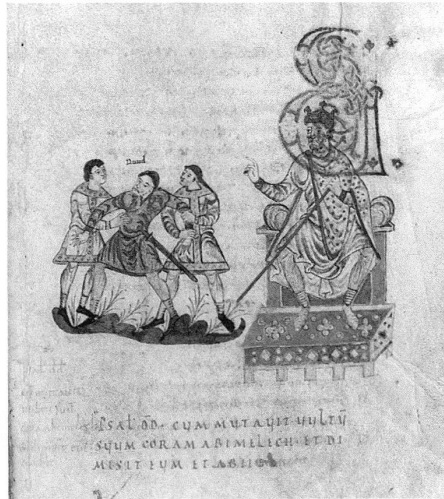 Dauid
PSAL̅ D̅D̅. CUM MUTAUIT UULTU̅
SUUM CORAM ABIMELECH. ET DI
MISIT EUM ET ABIIT